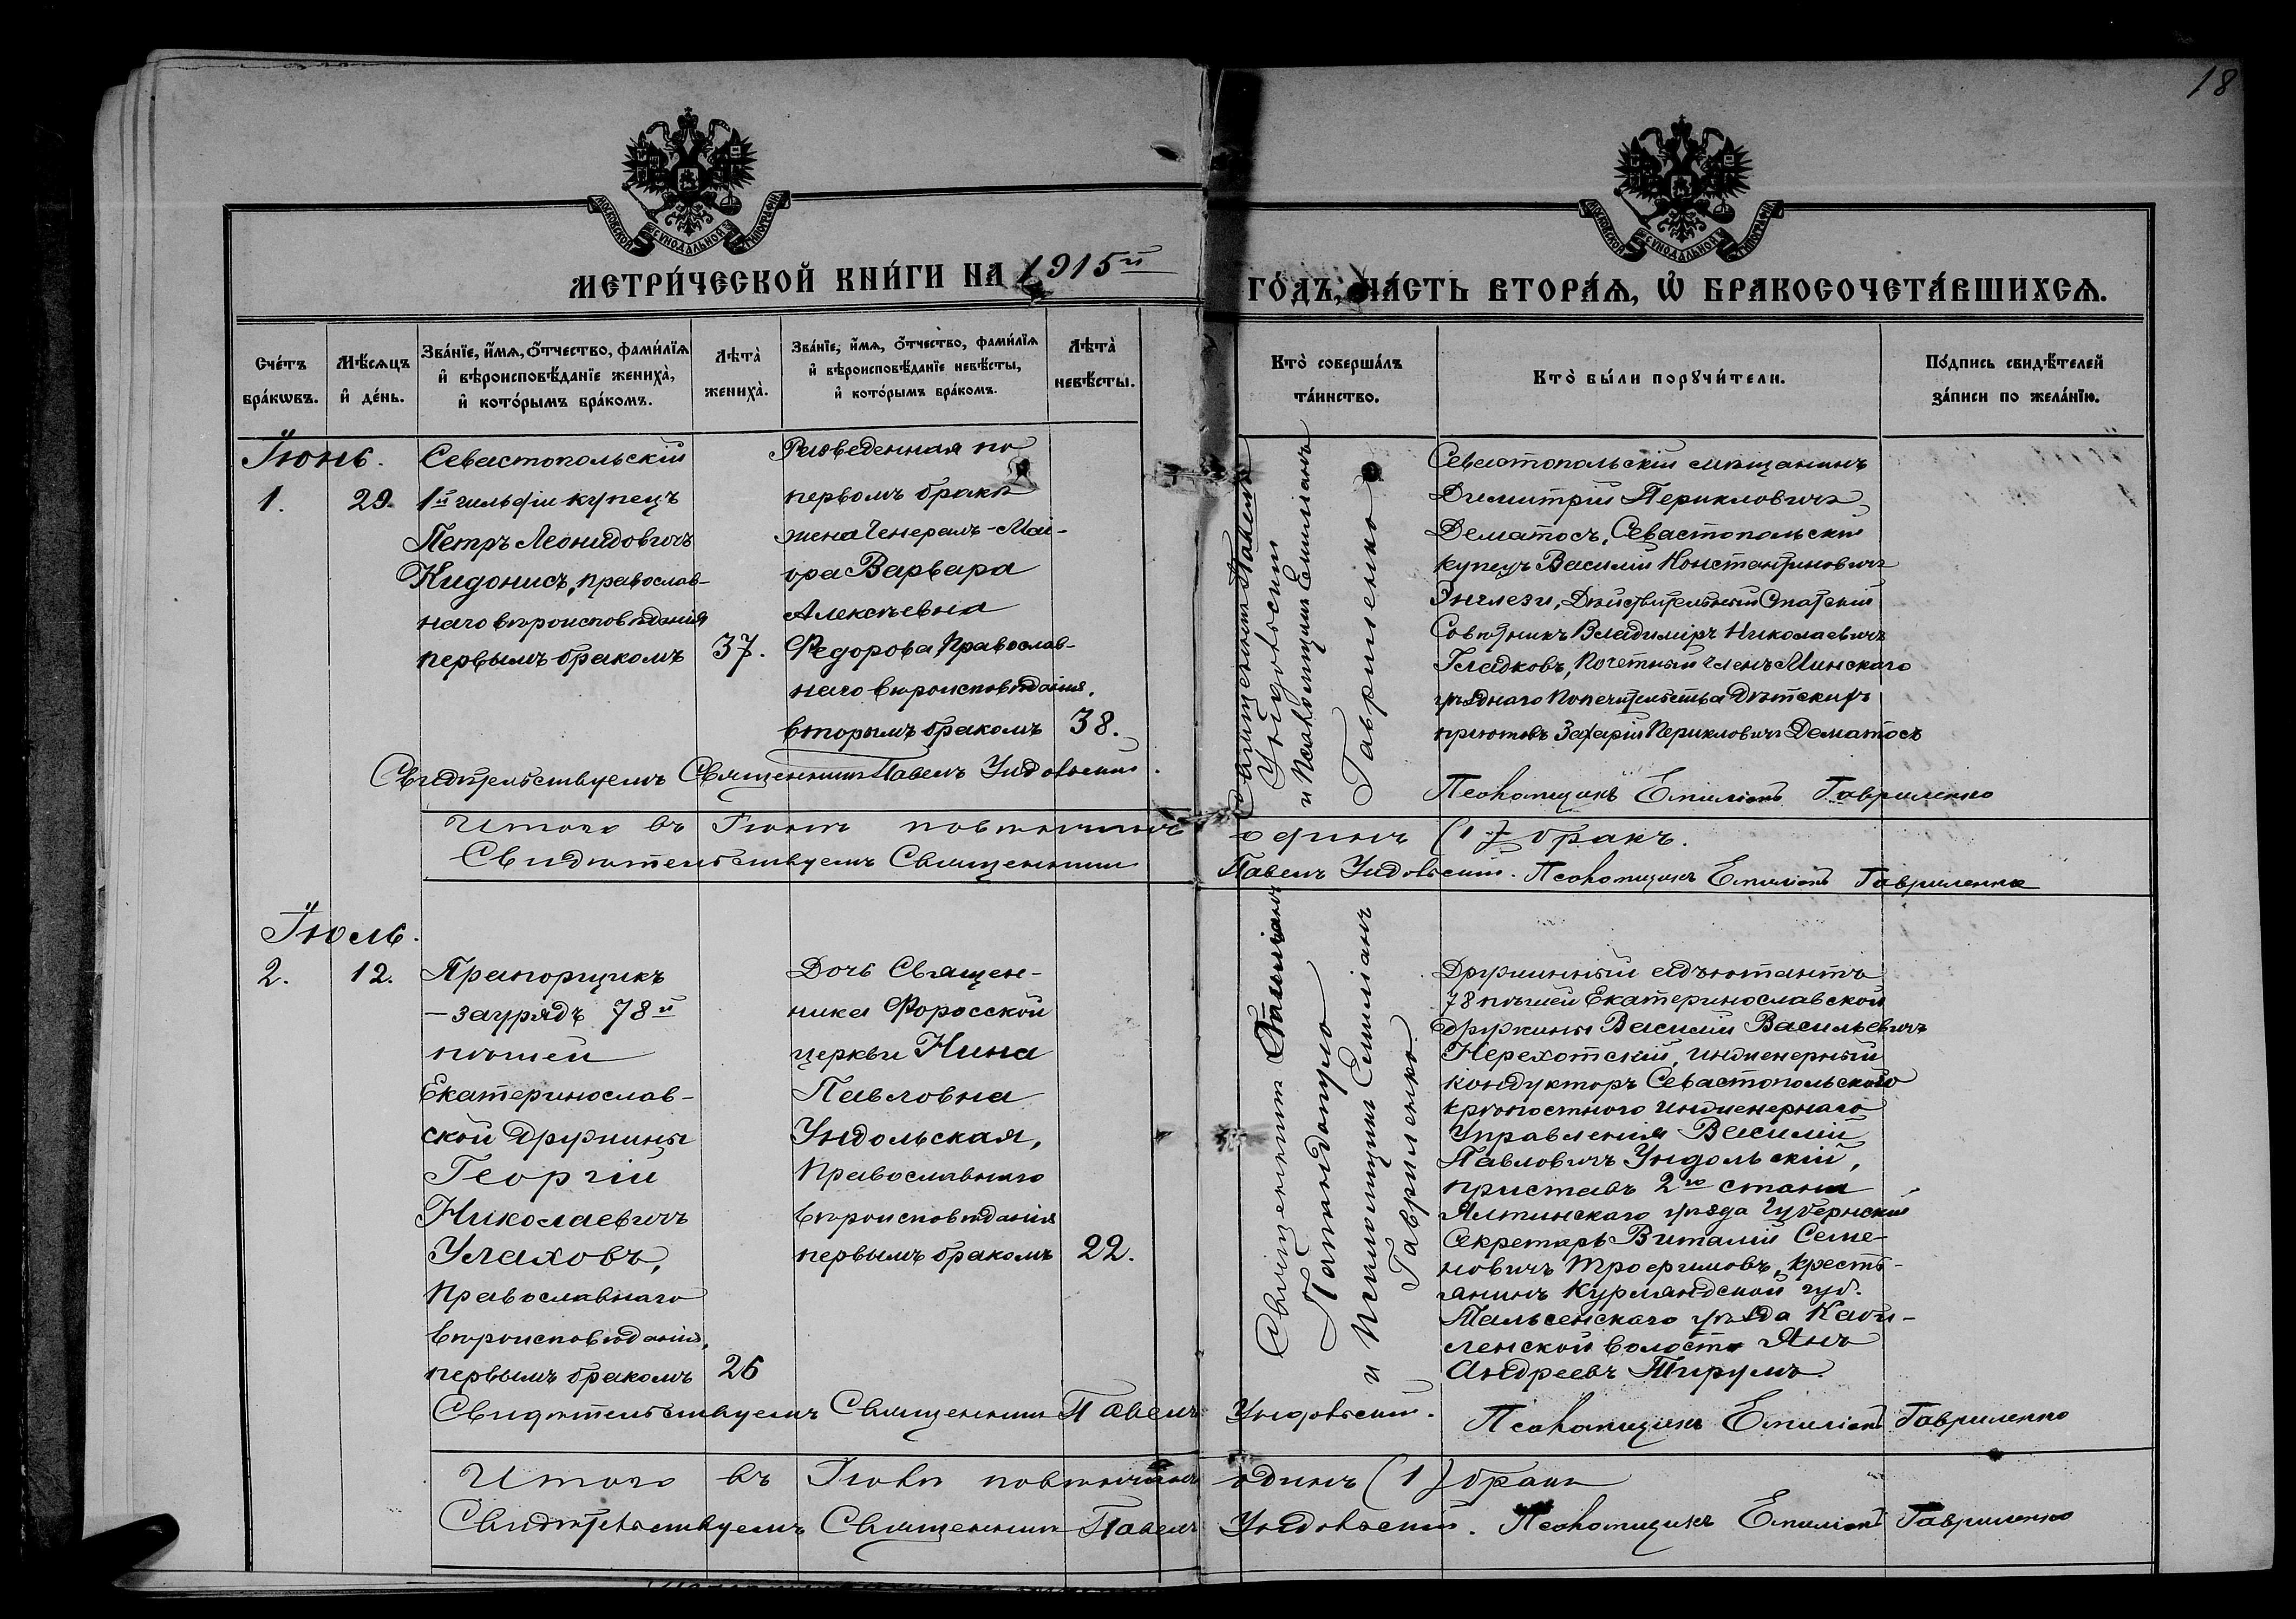 18
МОСКОВСКОЙ СѴНОДАЛЬНОЙ ТИПОГРАФІИ
МОСКОВСКОЙ СѴНОДАЛЬНОЙ ТИПОГРАФІИ
МЕТРИ́ЧЕСКОЙ КНИ́ГИ НА 1915й
ГО́ДЪ, ЧА́СТЬ ВТОРА́Ѧ, Ѡ҆ БРАКОСОЧЕТА́ВШИХСѦ.
Сче́тъ
бра́кѡвъ.
Мѣ́сѧцъ
и҆ де́нь.
Зва́нїе, и҆́мѧ, ѻ҆́тчество, фами́лїѧ
и҆ вѣроисповѣ́данїе жениха̀,
и҆ кото́рымъ бра́комъ.
Лѣта̀
жениха̀.
Зва́нїе, и҆́мѧ, ѻ҆́тчество, фами́лїѧ
и҆ вѣроисповѣ́данїе невѣ́сты,
и҆ кото́рымъ бра́комъ.
Лѣта̀
невѣ́сты.
Кто̀ соверша́лъ
та́инство.
Кто̀ бы́ли порꙋчи́тели.
По́дпись свидѣ́телей
за́писи по жела́нїю.
Іюнь.
1.
29.
Севастопольскій
1й гильдіи купецъ
Петръ Леонидовичъ
Кидонисъ, православ-
наго вѣроисповѣданія
первымъ бракомъ
37.
Разведенная по
первомъ бракѣ
жена Генералъ-Маі-
ора Варвара
Алексѣевна
Федорова, Православ-
наго вѣроисповѣданія,
вторымъ бракомъ
38.
Священникъ Павелъ
Ундольскій
и Псаломщикъ Емиліанъ
Гавриленко
Севастопольскій мѣщанинъ
Димитрій Периклowичъ
Дематосъ, Севастопольскій
купецъ Василій Константиновичъ
Энглези, Дѣйствительный Статскій
Совѣтникъ Владиміръ Николаевичъ
Гладковъ, Почетный членъ Минскаго
уѣзднаго Попечительства Дѣтскихъ
пріютовъ Захарій Перикловичъ Дематосъ
Свидѣтельствуемъ Священникъ Павелъ Ундольскій.
Псаломщикъ Емиліанъ Гавриленко
Итого въ Іюнѣ повѣнчанъ одинъ (1) бракъ.
Свидѣтельствуемъ Священникъ Павелъ Ундольскій. Псаломщикъ Емиліанъ Гавриленко
Іюль.
2.
12.
Прапорщикъ
-заурядъ 78й
пѣшей
Екатеринослав-
ской дружины
Георгій
Николаевичъ
Улаховъ,
Православнаго
вѣроисповѣданія,
первымъ бракомъ
26
Дочь Священ-
ника Форосской
церкви Нина
Павловна
Ундольская,
Православнаго
вѣроисповѣданія
первымъ бракомъ
22.
Священникъ
Папандопуло
и Псаломщикъ Емиліанъ
Гавриленко.
Дружинный адъютантъ
78 пѣшей Екатеринославской
дружины Василій Васильевичъ
Нерехотскій, инженерный
кондукторъ Севастопольскаго
крѣпостного инженернаго
Управленія Василій
Павловичъ Ундольскій,
приставъ 2го стана
Ялтинскаго уѣзда Губернскій
Секретарь Виталій Семе-
новичъ Трофимовъ, кресть-
янинъ Курляндской губ.
Тальсенскаго уѣзда Каби-
ленской волости Янъ
Андреевъ Тирумъ.
Свидѣтельствуемъ Священникъ Павелъ Ундольскій. Псаломщикъ Емиліанъ Гавриленко
Итого въ Іюлѣ повѣнчанъ одинъ (1) бракъ
Свидѣтельствуемъ Священникъ Павелъ Ундольскій. Псаломщикъ Емиліанъ Гавриленко